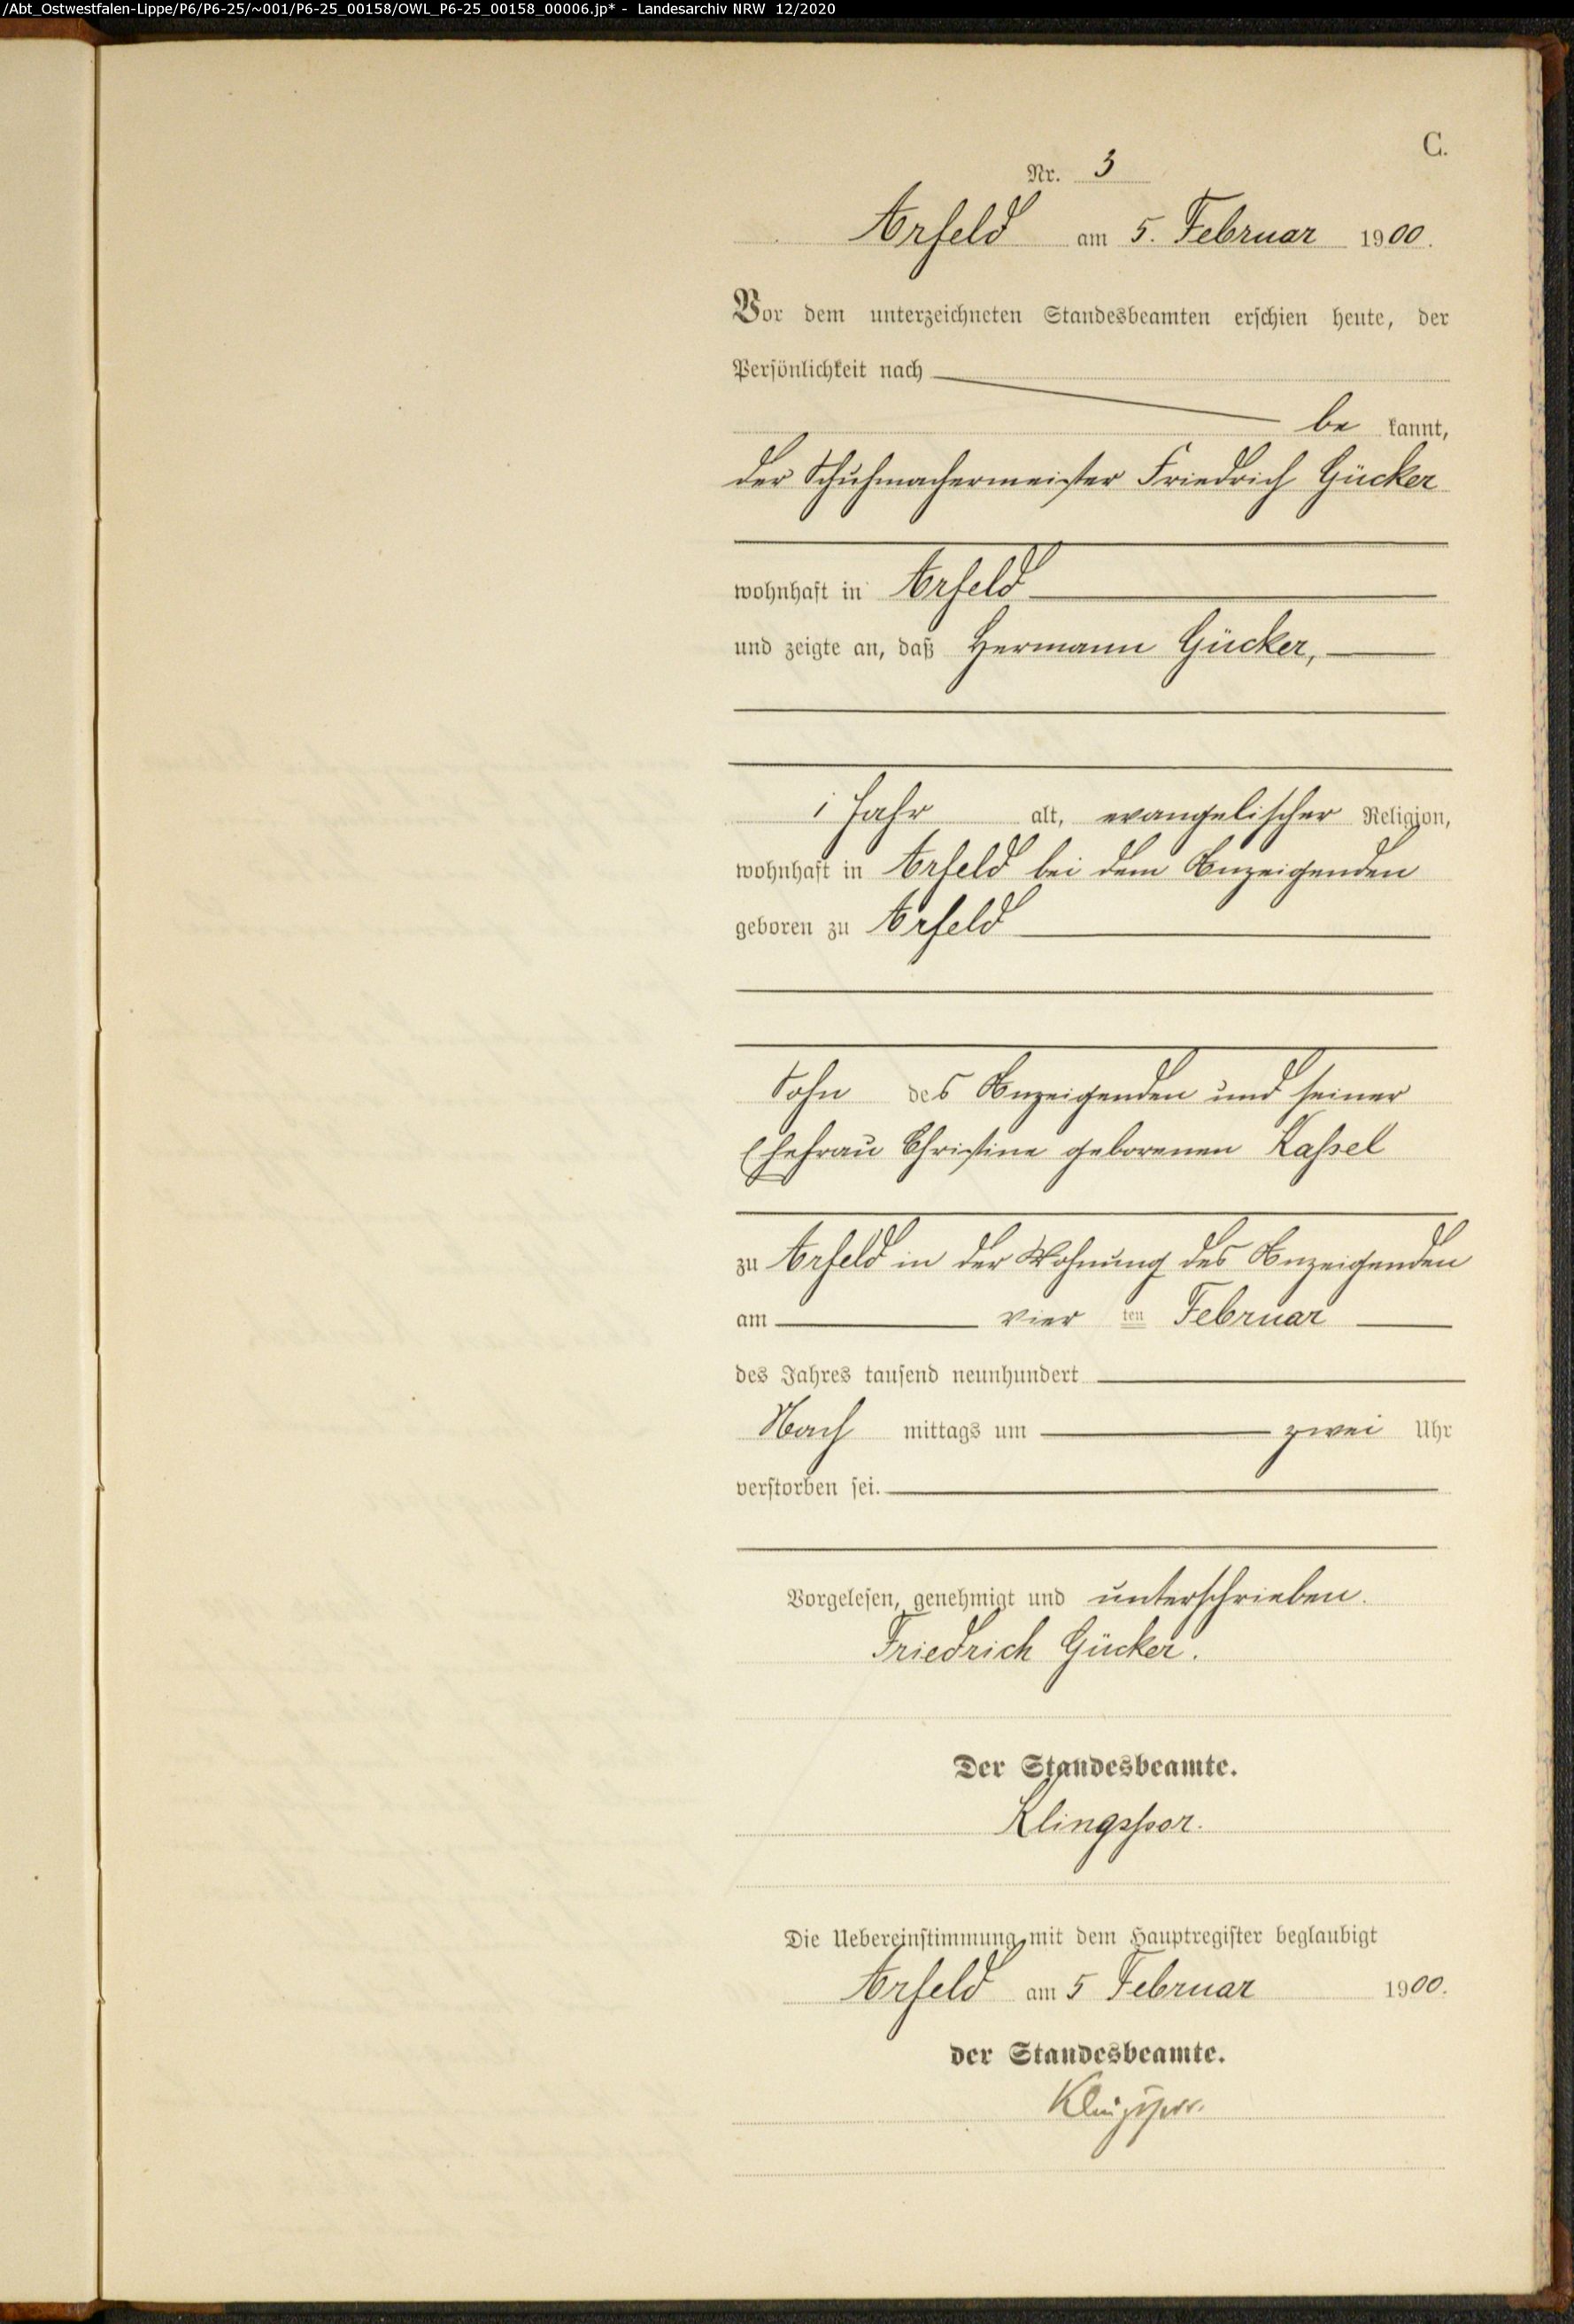 /Abt_Ostwestfalen-Lippe/P6/P6-25/~001/P6-25_00158/OWL_P6-25_00158_00006.jp* - Landesarchiv NRW 12/2020
C.
Nr. 3
Arfeld am 5. Februar 1900.
Vor dem unterzeichneten Standesbeamten erschien heute, der
Persönlichkeit nach
be kannt,
der Schuhmachermeister Friedrich Gücker
wohnhaft in Arfeld
und zeigte an, daß Hermann Gücker,
1 Jahr alt, evangelischer Religion,
wohnhaft in Arfeld bei dem Anzeigenden
geboren zu Arfeld
Sohn des Anzeigenden und seiner
Ehefrau Christine geborenen Kaßel
zu Arfeld in der Wohnung des Anzeigenden
am vier ten Februar
des Jahres tausend neunhundert
Nach mittags um zwei Uhr
verstorben sei.
Vorgelesen, genehmigt und unterschrieben.
Friedrich Gücker.
Der Standesbeamte.
Klingspor.
Die Uebereinstimmung mit dem Hauptregister beglaubigt
Arfeld am 5 Februar 1900.
der Standesbeamte.
Klingspor.